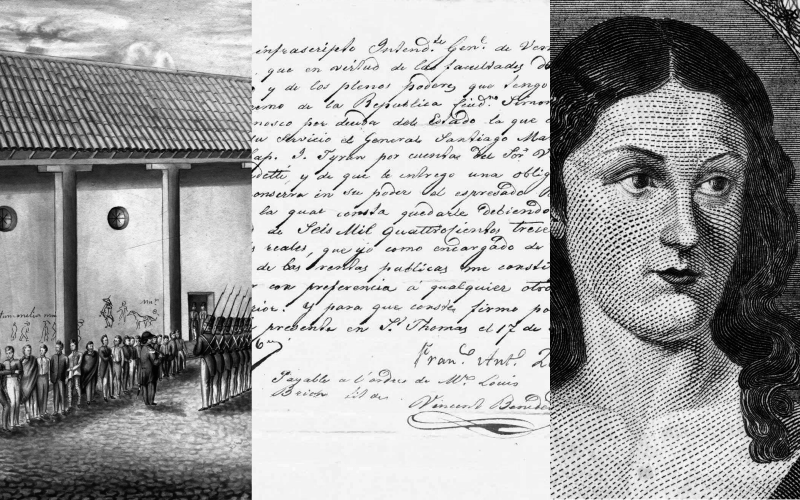 infrascripto Intend.te Gen.l de Ven
que en virtud de las facultades d
y de los plenos poderes que tengo
erno de la Republica Ciud.no Simon
nosco por deuda del Estado la que
su servicio de General Santiago Ma
ap. J. Tyran por cuenta del Sor. V
dette, y de que le entrego una oblig
onserva en su poder el espresado
la qual consta quedarle debiendo
de Seis Mil quattrosientos trece
s reales, que yo como encargado de
de las rentas publicas me constit
con preferencia a qualquier otr
ior. Y para que conste firmo p
presente en Sn Thomas el 17 de
Fran.co Ant.
Payable a l'ordre de Mr. Louis
Brion
Vincent Bened